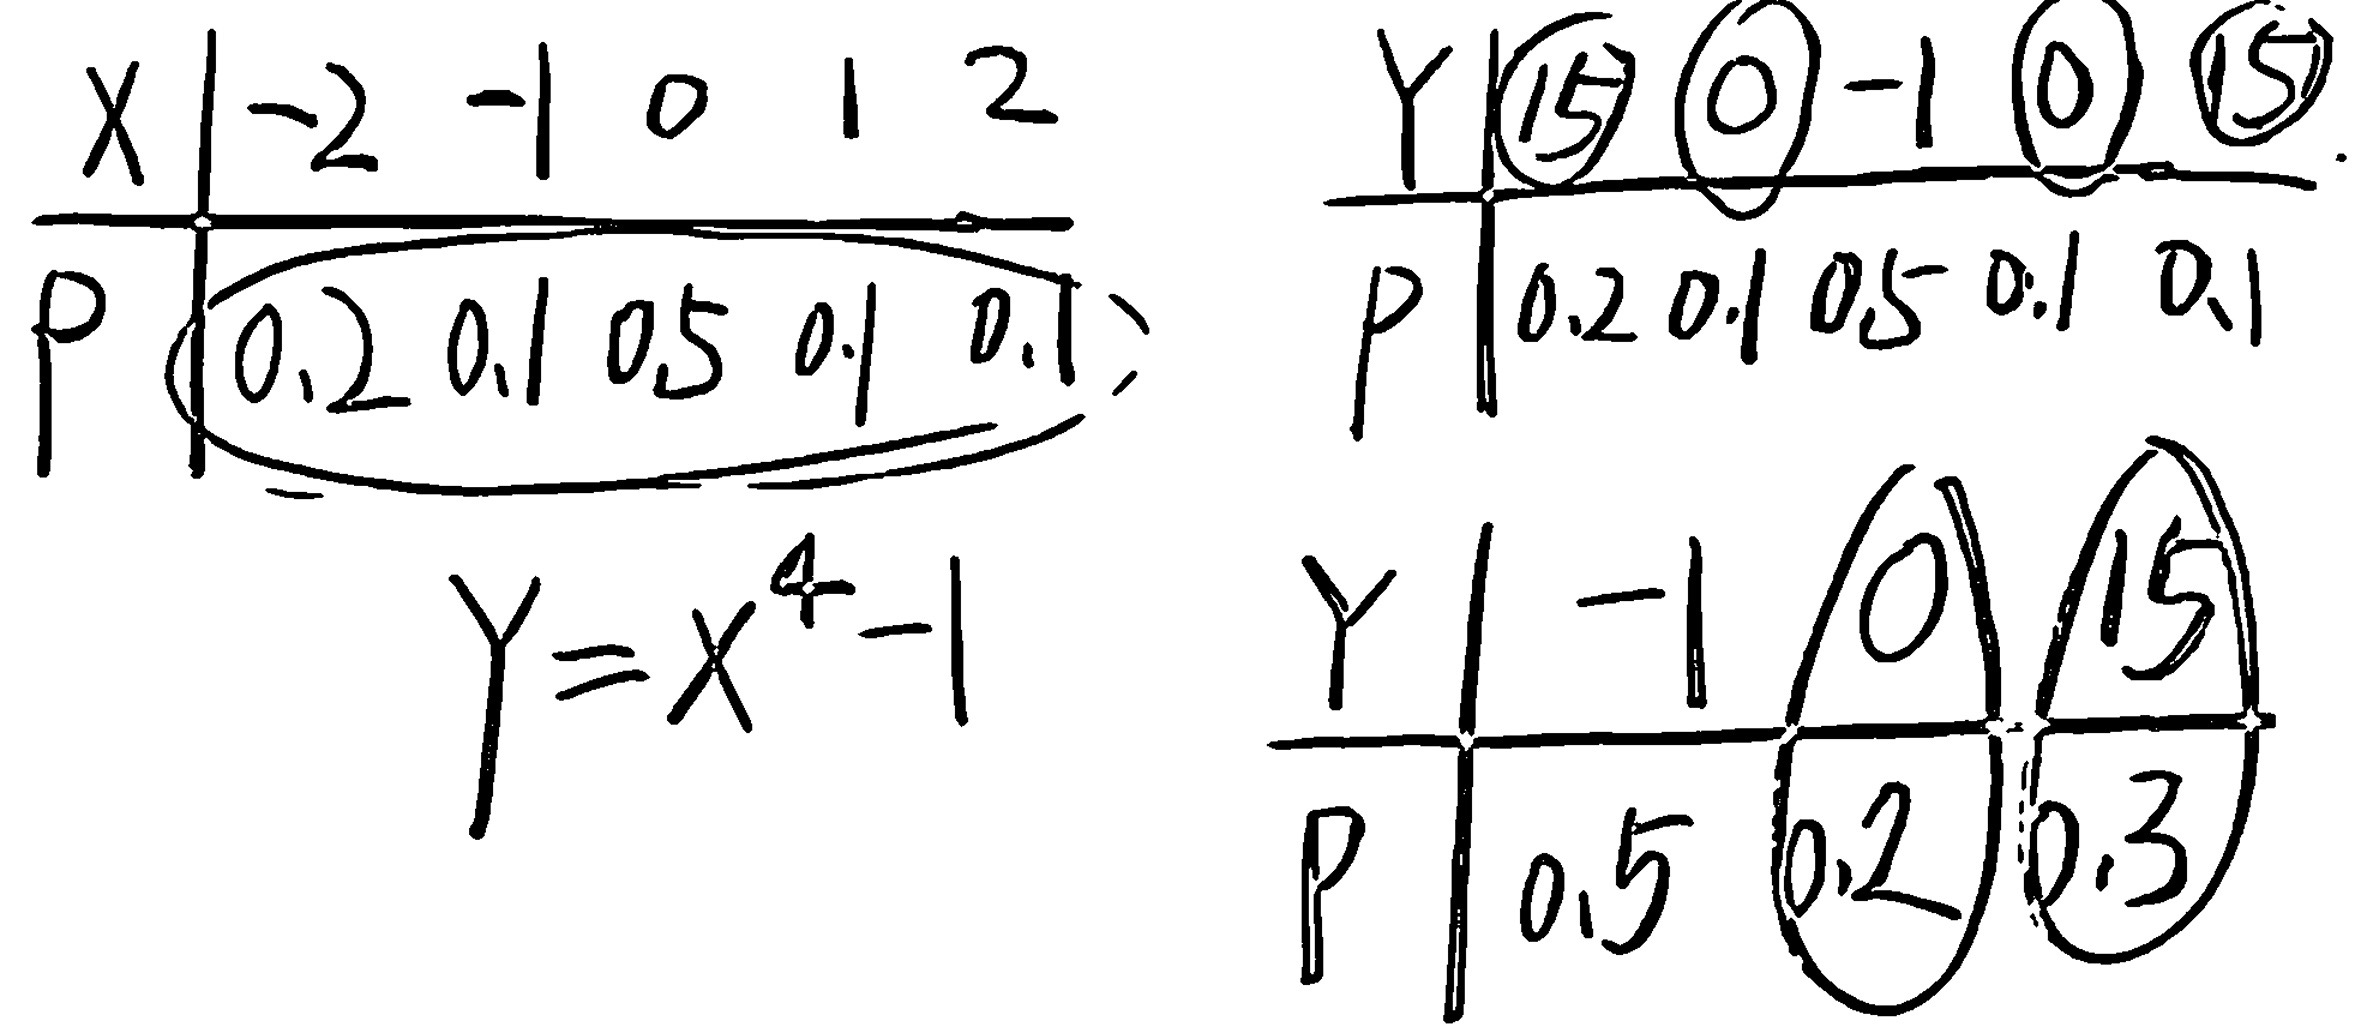 X -2 -1 0 1 2
P 0.2 0.1 0.5 0.1 0.1
Y = X⁴ - 1
Y 15 0 -1 0 15
P 0.2 0.1 0.5 0.1 0.1
Y -1 0 15
P 0.5 0.2 0.3